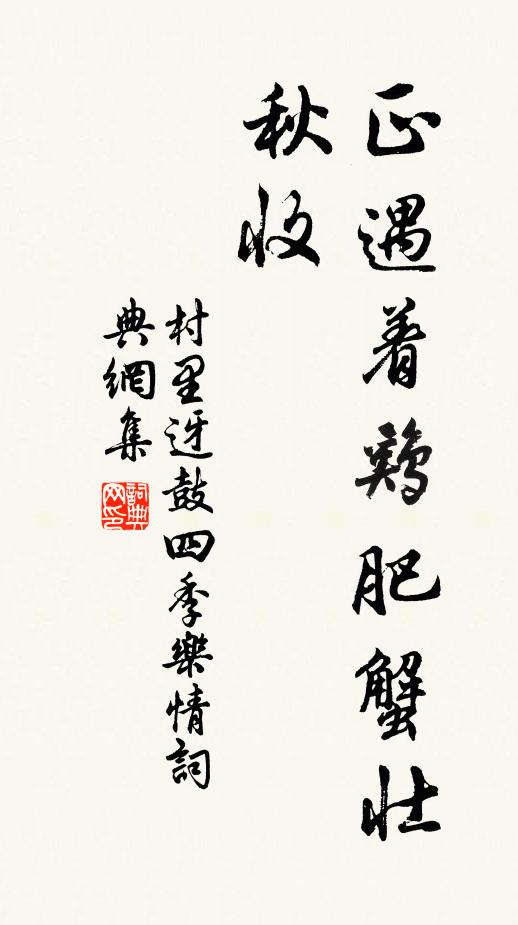 正遇着鷄肥蟹壮
秋收
村里迓鼓四季樂情詞
典網集
詞典
网印